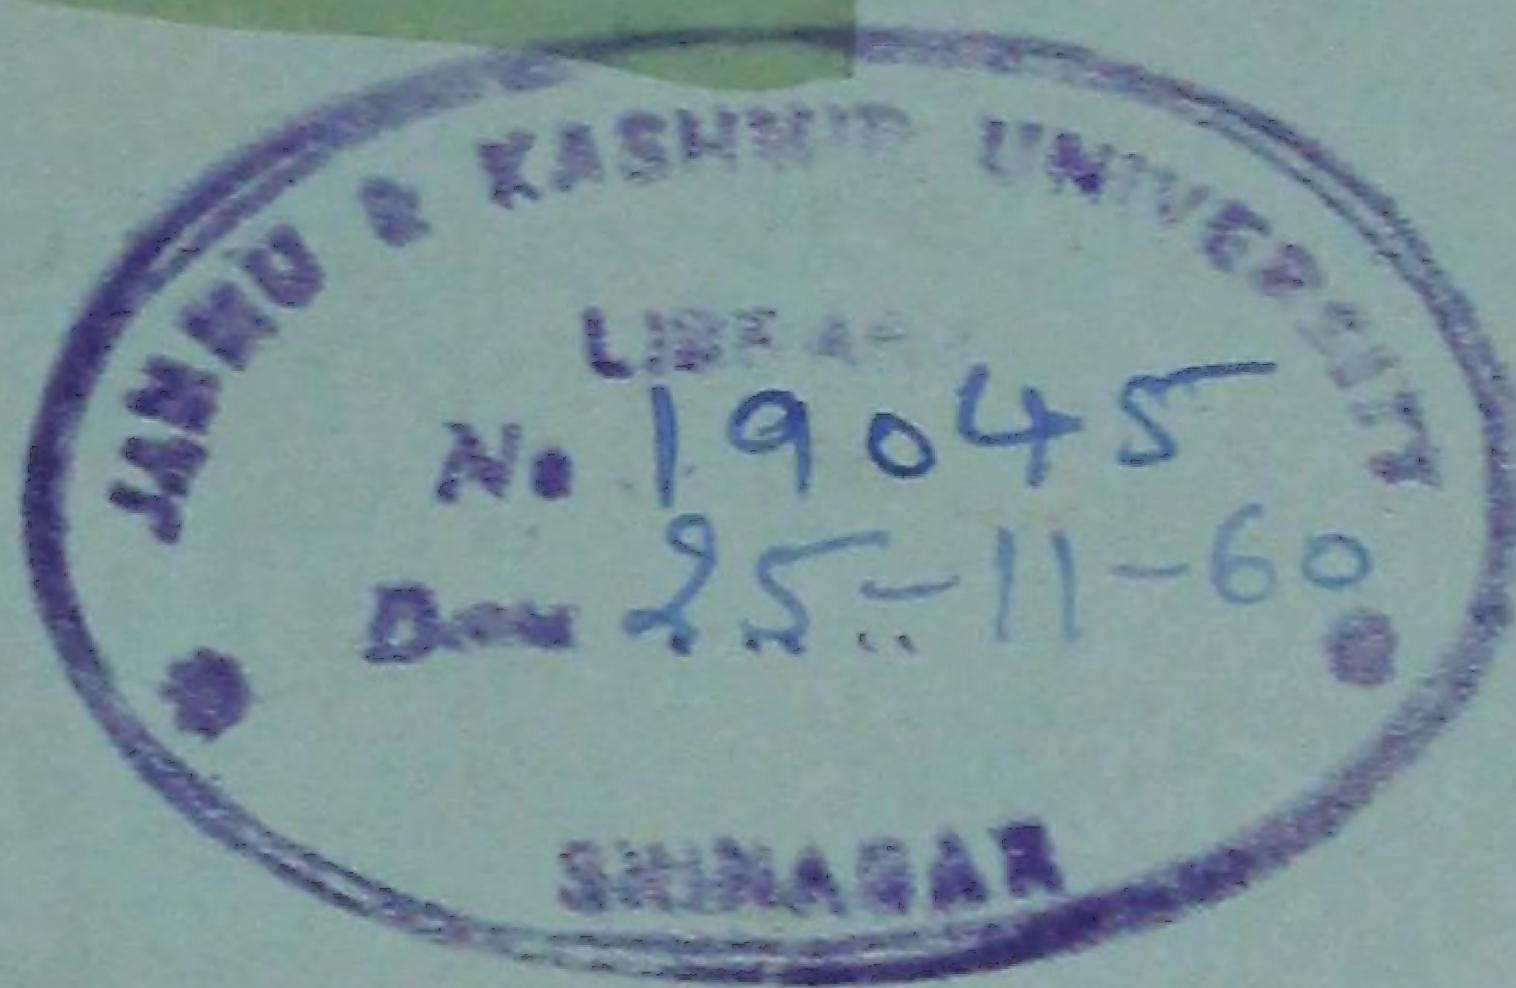 JAMMU & KASHMIR UNIVERSITY
LIBRARY
No. 19045
25-11-60
SRINAGAR